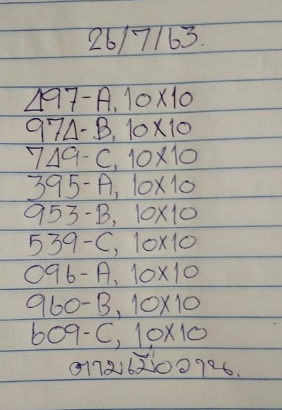 26/7/63.
497-A, 10X10
974-B, 10X10
749-C, 10X10
395-A, 10X10
953-B, 10X10
539-C, 10X10
096-A, 10X10
960-B, 10X10
609-C, 10X10
ตามเมื่อวาน.